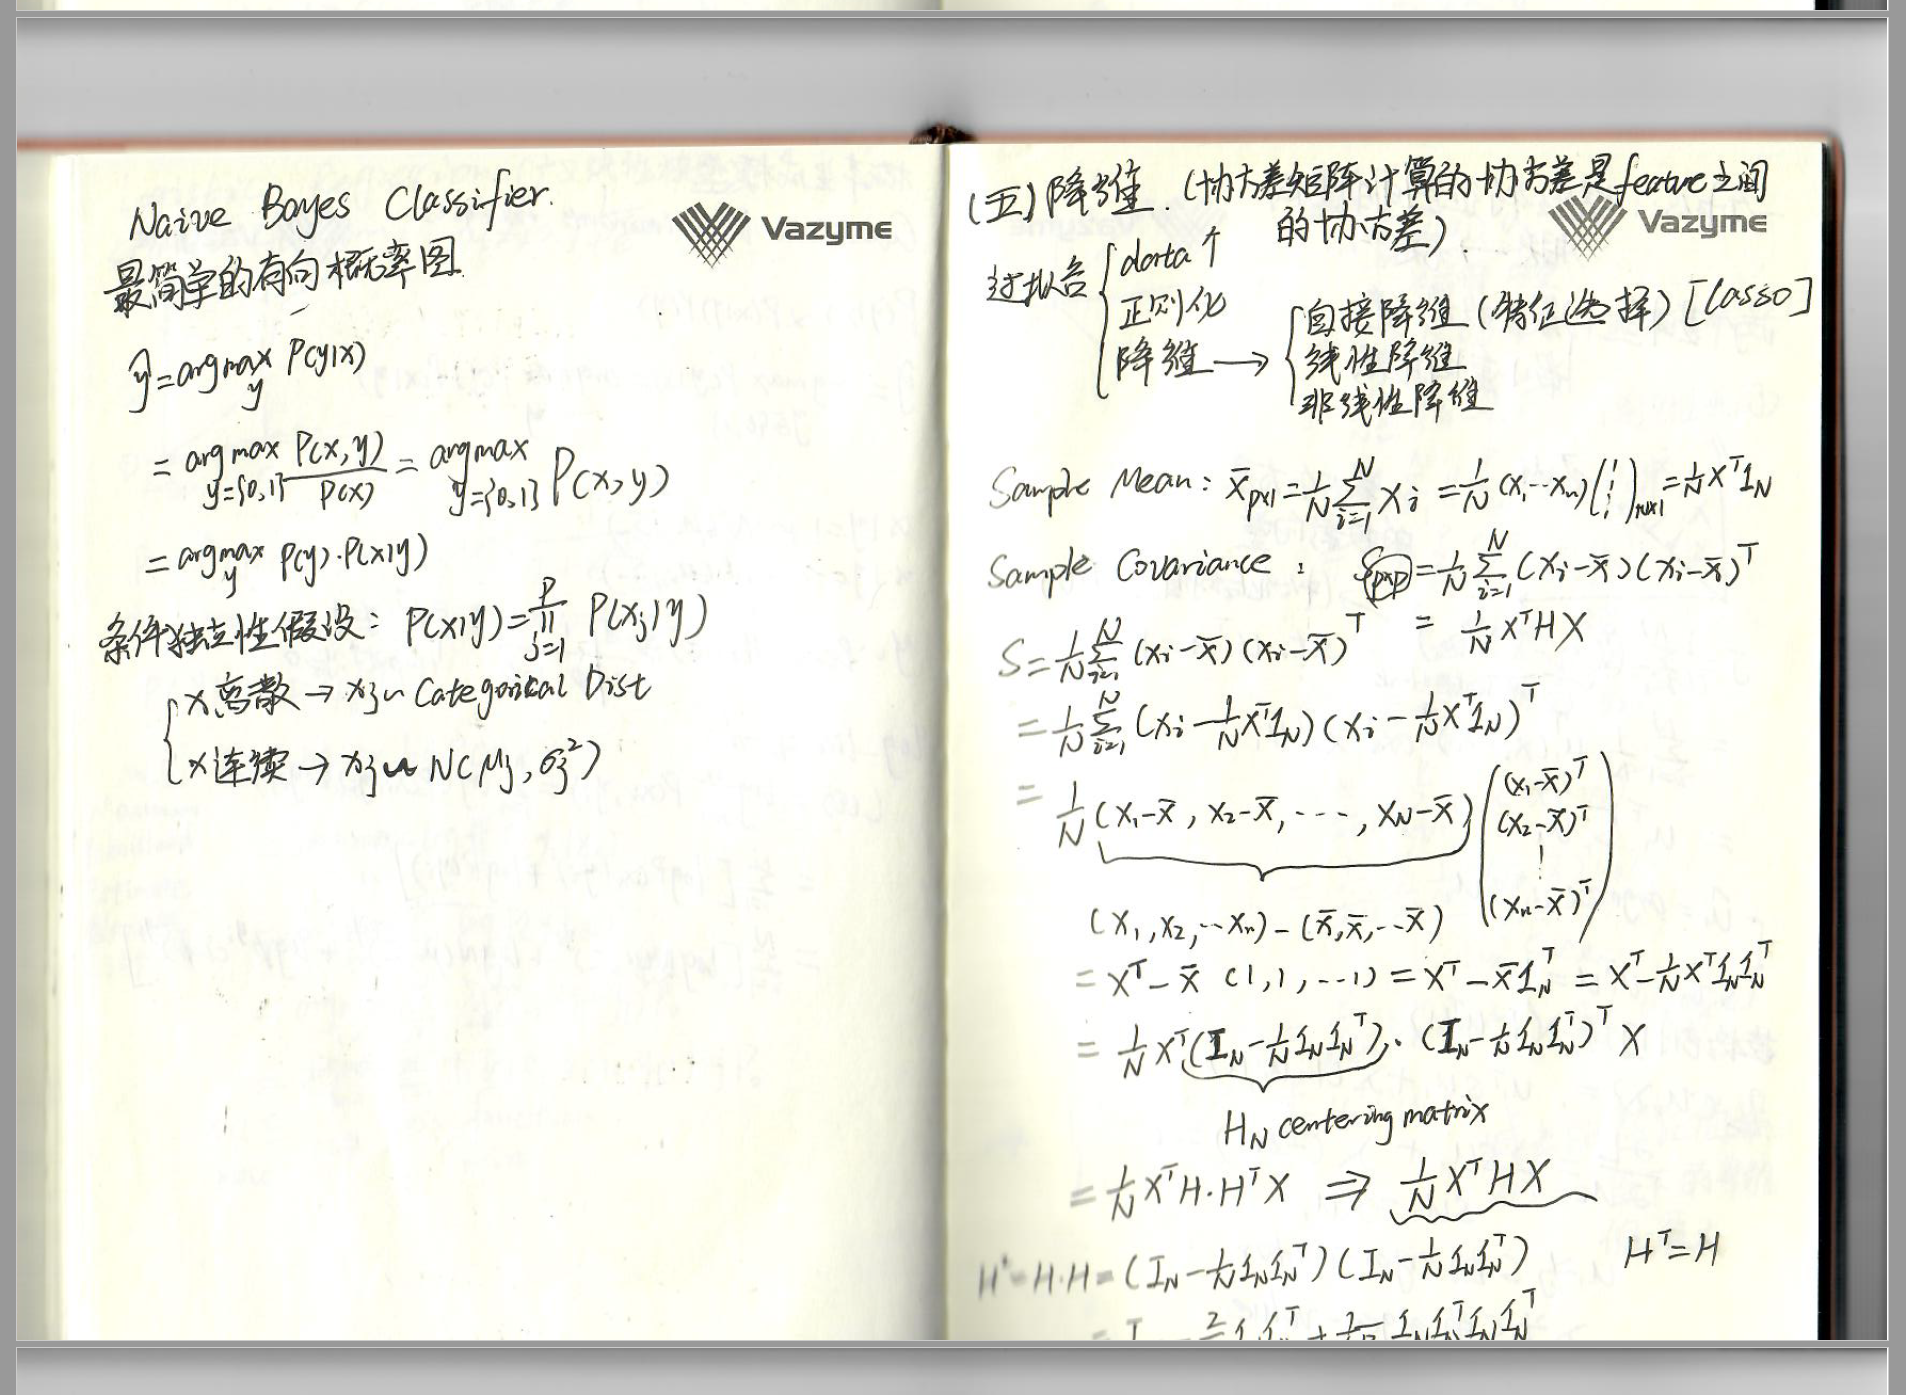 Naive Bayes Classifier.
Vazyme
最简单的有向概率图
ŷ = argmax_y P(y|x)
= argmax_{y={0,1}} P(x,y)/P(x) = argmax_{y={0,1}} P(x,y)
= argmax_y P(y)·P(x|y)
条件独立性假设: P(x|y) = ∏_{j=1}^{P} P(x_j|y)
{ x离散 → x_j ~ Categorical Dist
x连续 → x_j ~ N(μ_j, σ_j²)
(五) 降维. (协方差矩阵计算的协方差是feature之间
的协方差).
Vazyme
过拟合 { data↑
正则化
降维 → { 直接降维 (特征选择) [Lasso]
线性降维
非线性降维
Sample Mean: x̄_{p×1} = 1/N Σ_{i=1}^{N} x_i = 1/N (x_1 ... x_n) (1 ⋮ 1)_{N×1} = 1/N X^T 1_N
Sample Covariance: S_{p×p} = 1/N Σ_{i=1}^{N} (x_i - x̄)(x_i - x̄)^T
= 1/N X^T H X
S = 1/N Σ_{i=1}^{N} (x_i - x̄)(x_i - x̄)^T
= 1/N Σ_{i=1}^{N} (x_i - 1/N X^T 1_N)(x_i - 1/N X^T 1_N)^T
= 1/N (x_1 - x̄, x_2 - x̄, ..., x_N - x̄) ( (x_1 - x̄)^T (x_2 - x̄)^T ⋮ (x_n - x̄)^T )
(x_1, x_2, ... x_n) - (x̄, x̄, ... x̄)
= X^T - x̄ (1, 1, ... 1) = X^T - x̄ 1_N^T = X^T - 1/N X^T 1_N 1_N^T
= 1/N X^T (I_N - 1/N 1_N 1_N^T) · (I_N - 1/N 1_N 1_N^T)^T X
H_N centering matrix
= 1/N X^T H · H^T X ⇒ 1/N X^T H X
H² = H·H = (I_N - 1/N 1_N 1_N^T)(I_N - 1/N 1_N 1_N^T) H^T = H